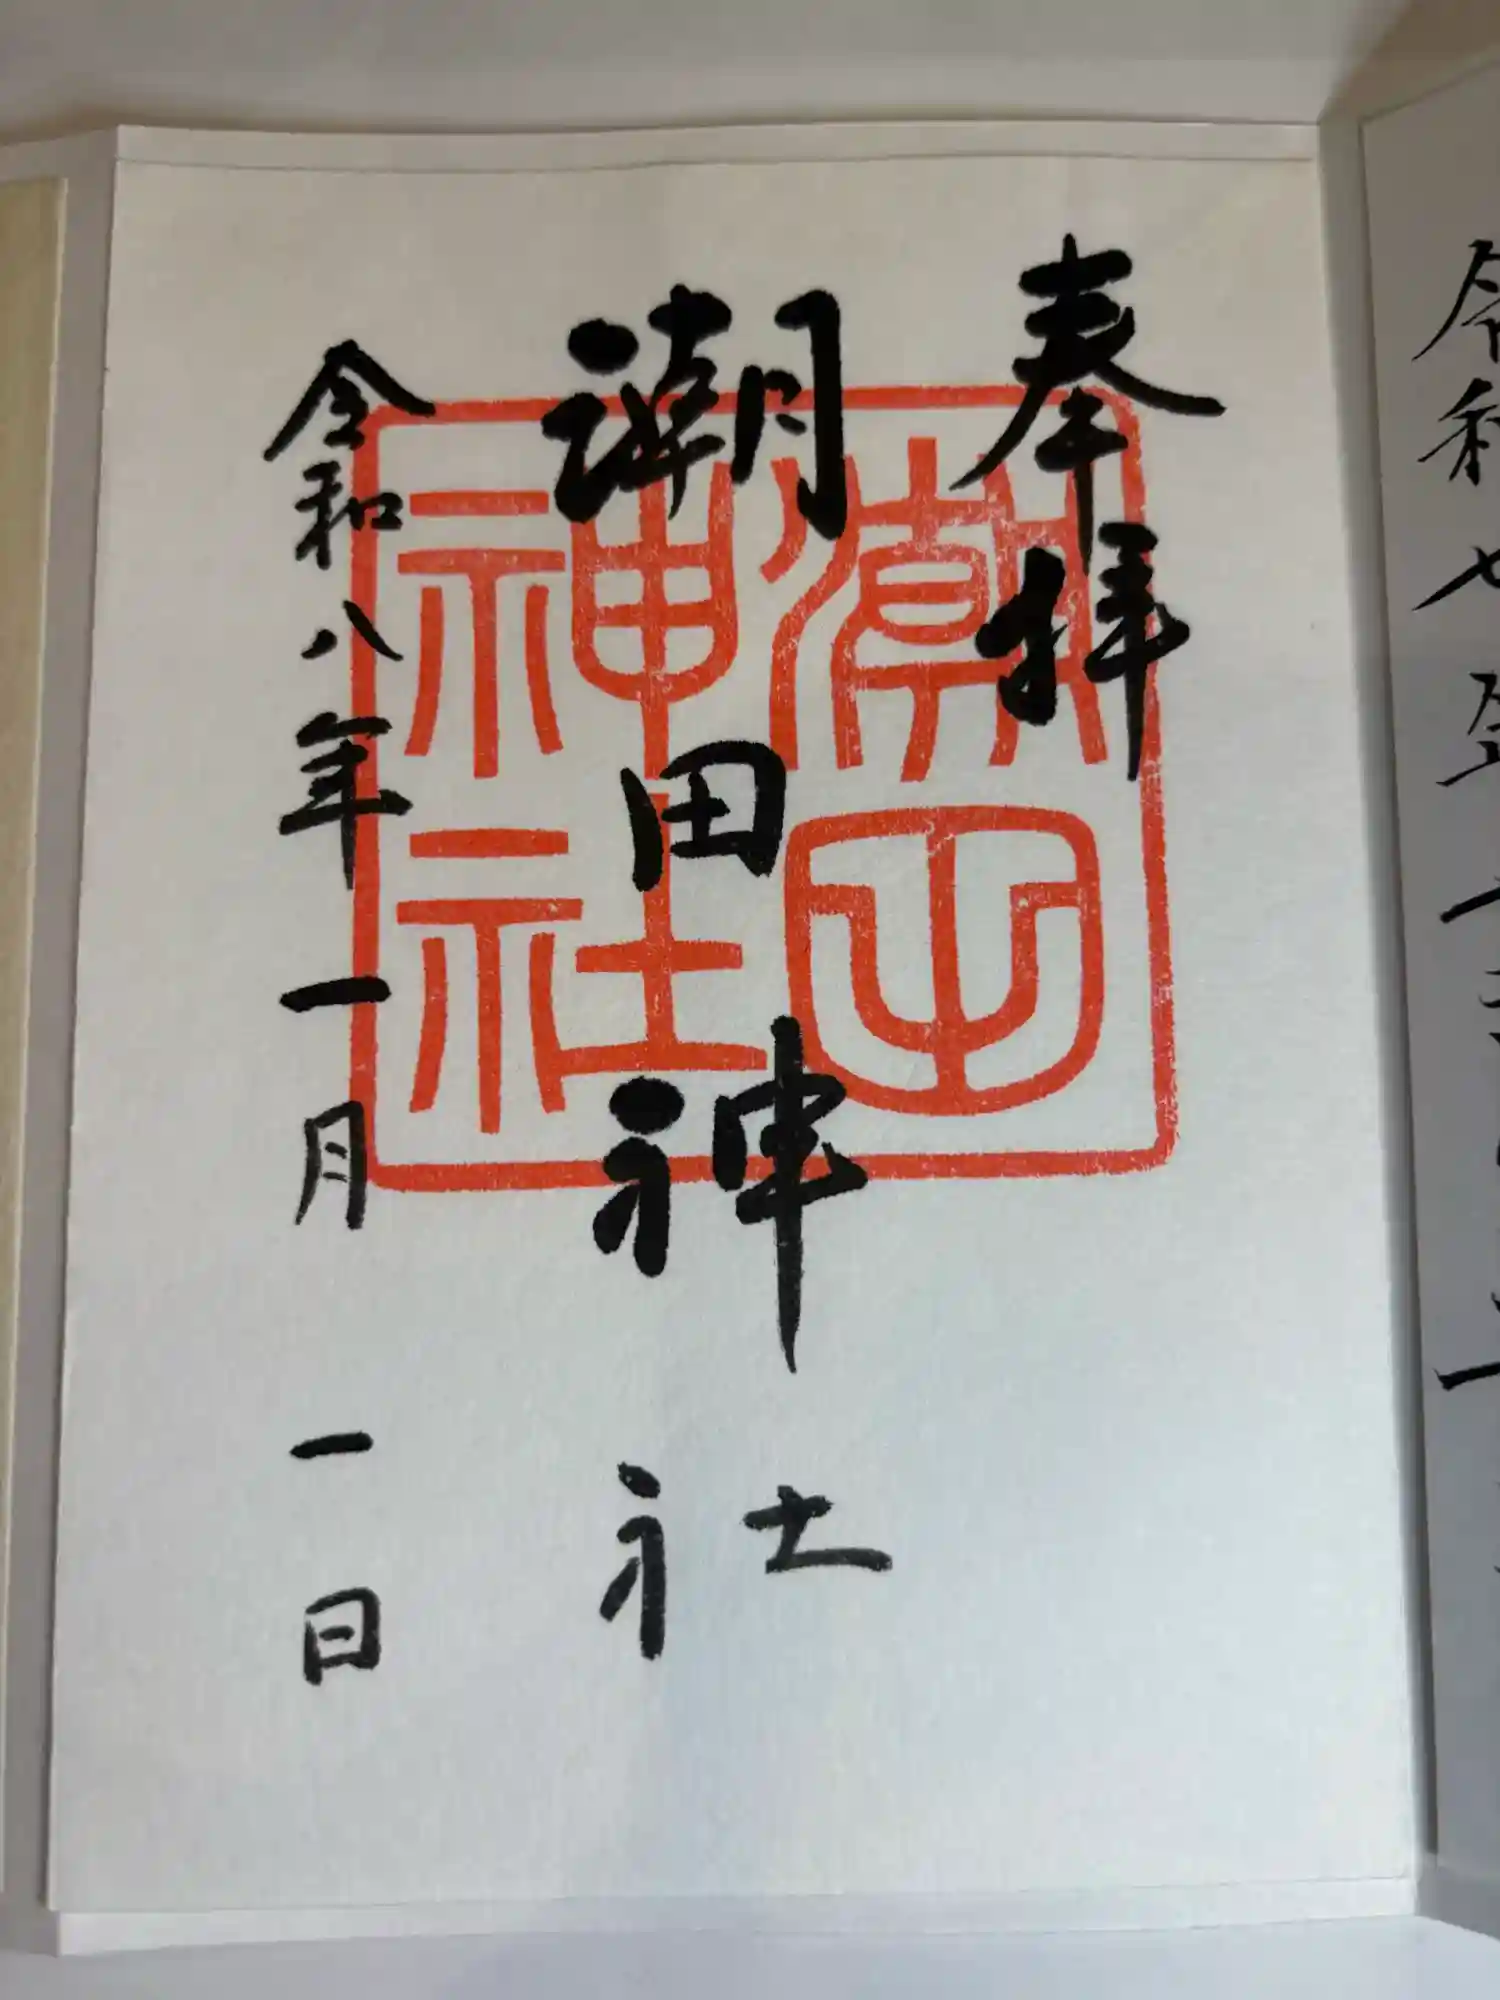 令和七年
奉拝
潮田神社
令和八年一月一日
潮田
神社